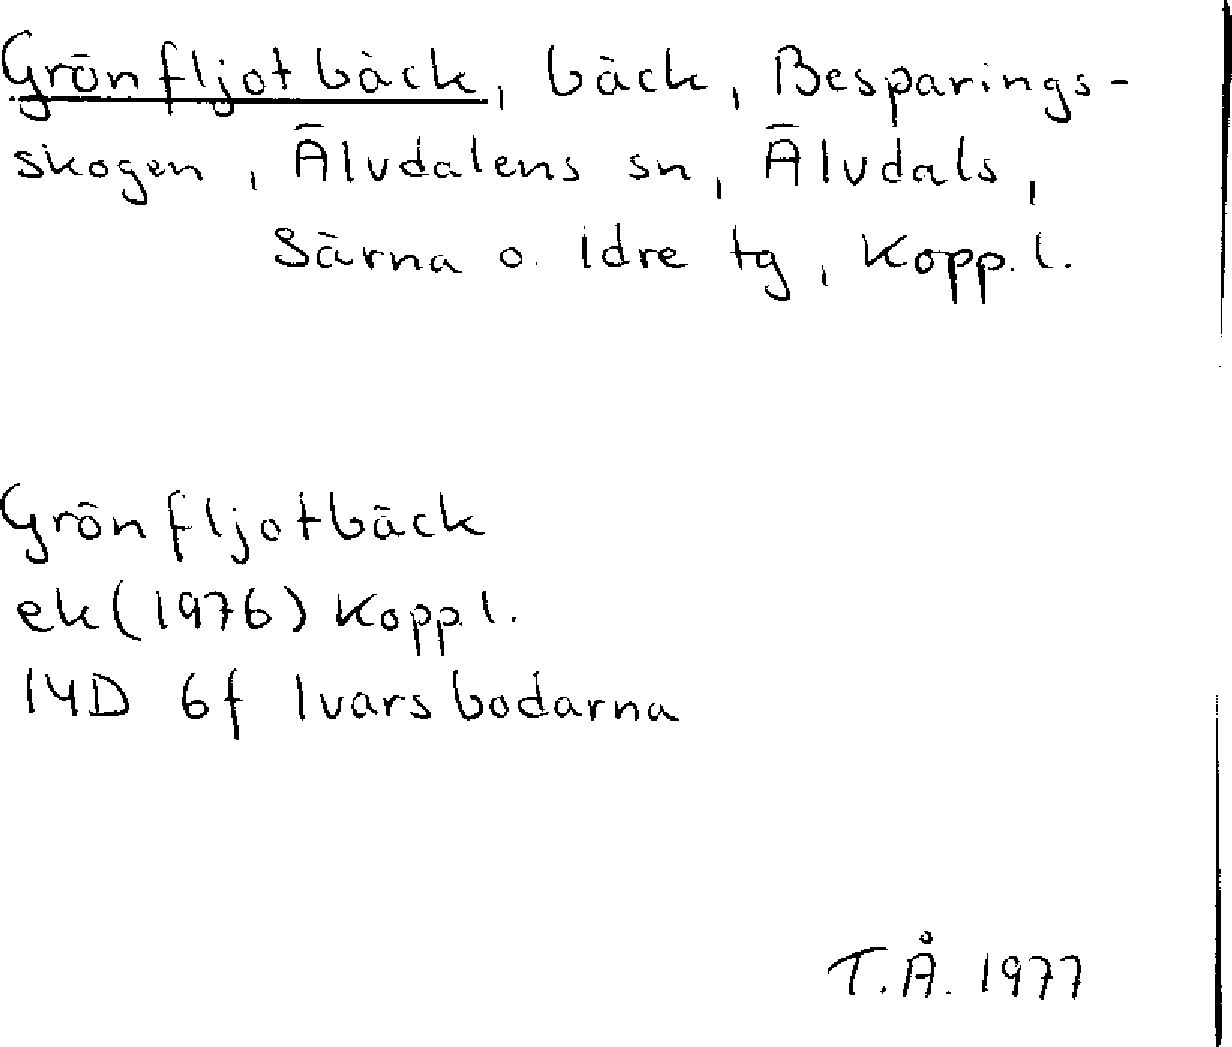 Grönfljotbäck, bäck, Besparings-
skogen, Älvdalens sn, Älvdals,
Särna o. Idre tg, Kopp. l.
Grönfljotbäck
ek (1976) Kopp l.
14D 6f Ivarsbodarna
T.Å. 1977